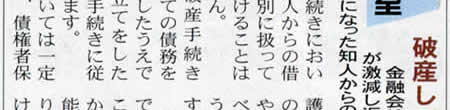 室
破産し
金融会
が激減し
になった知人からの
続きにおい
人からの借
別に扱って
けることは
ん。
産手続き
ての債務を
したうえで
立てをした
手続きに従
ます。
いては一定
、債権者保
護
の
や
べ
す
こ
で
た
か
能
り
け